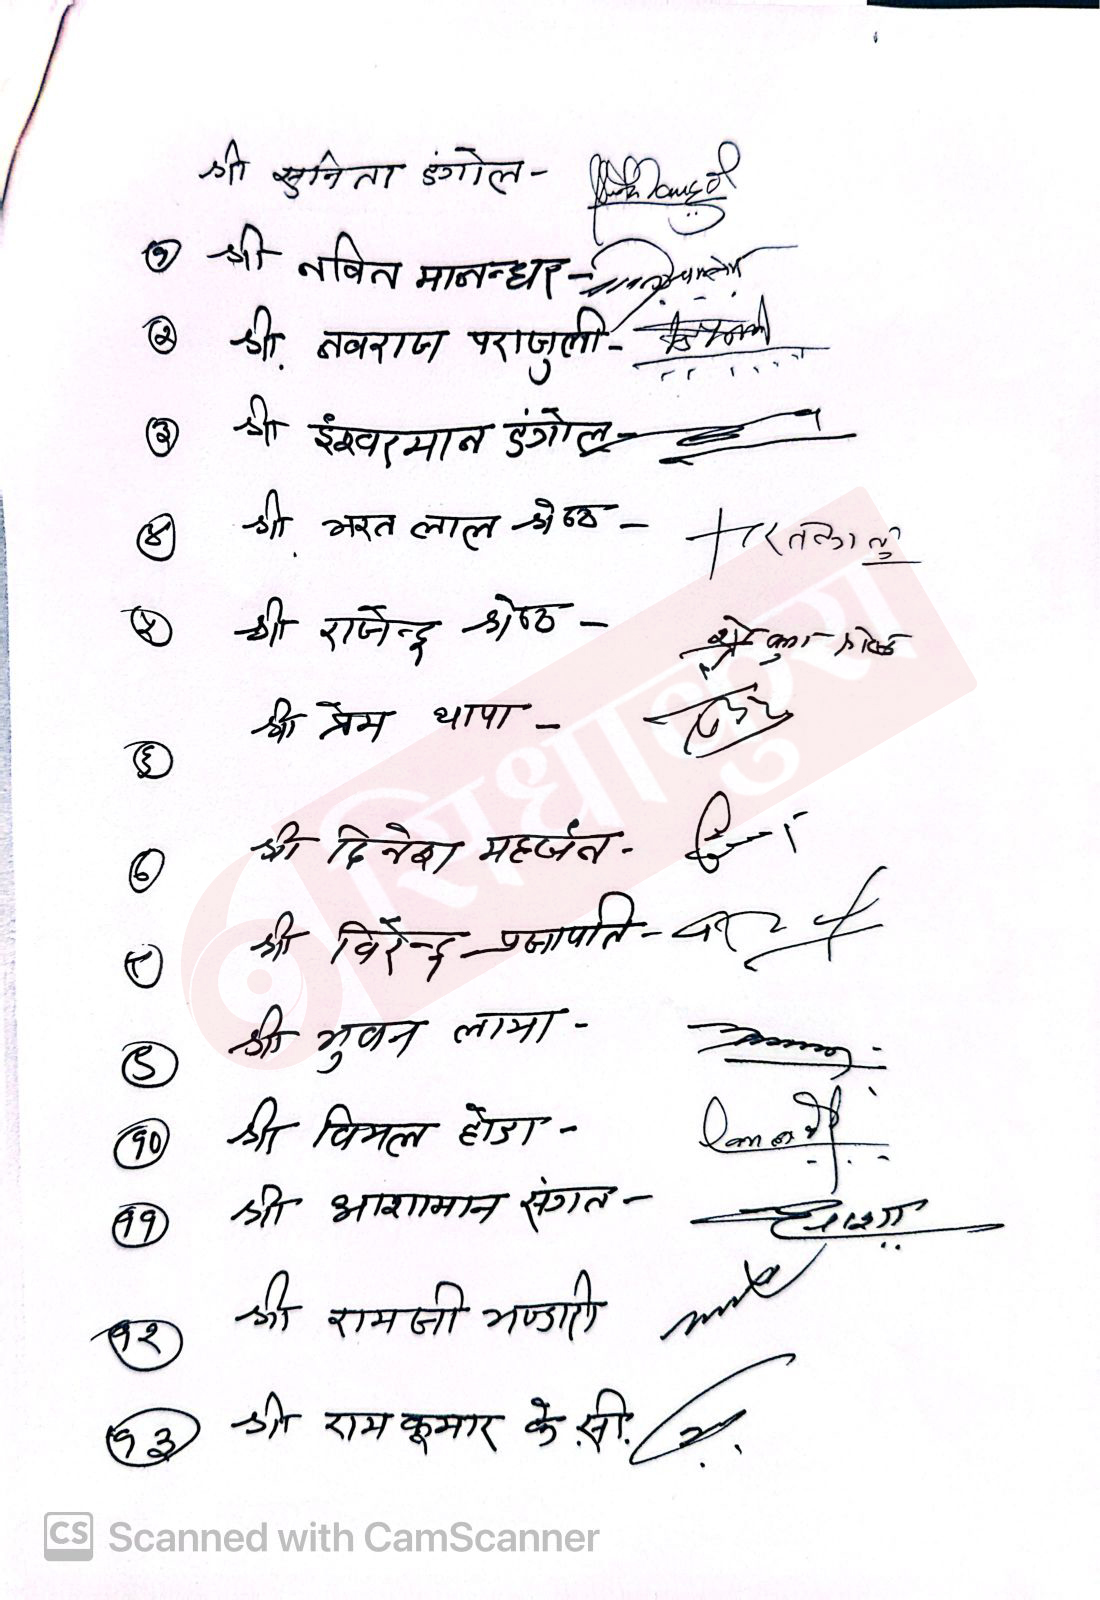 श्री सुनिता डंगोल -
१ श्री नविन मानन्धर -
२ श्री नवराज पराजुली -
३ श्री ईश्वरमान डंगोल
४ श्री भरत लाल श्रेष्ठ -
५ श्री राजेन्द्र श्रेष्ठ -
६ श्री प्रेम थापा -
७ श्री दिनेश महर्जन -
८ श्री विरेन्द्र प्रजापति -
९ श्री भुवन लामा -
१० श्री विमल होडा -
११ श्री आशामान संगत -
१२ श्री रामजी भण्डारी
१३ श्री रामकुमार के.सी.
सिधाकुरा
CS Scanned with CamScanner